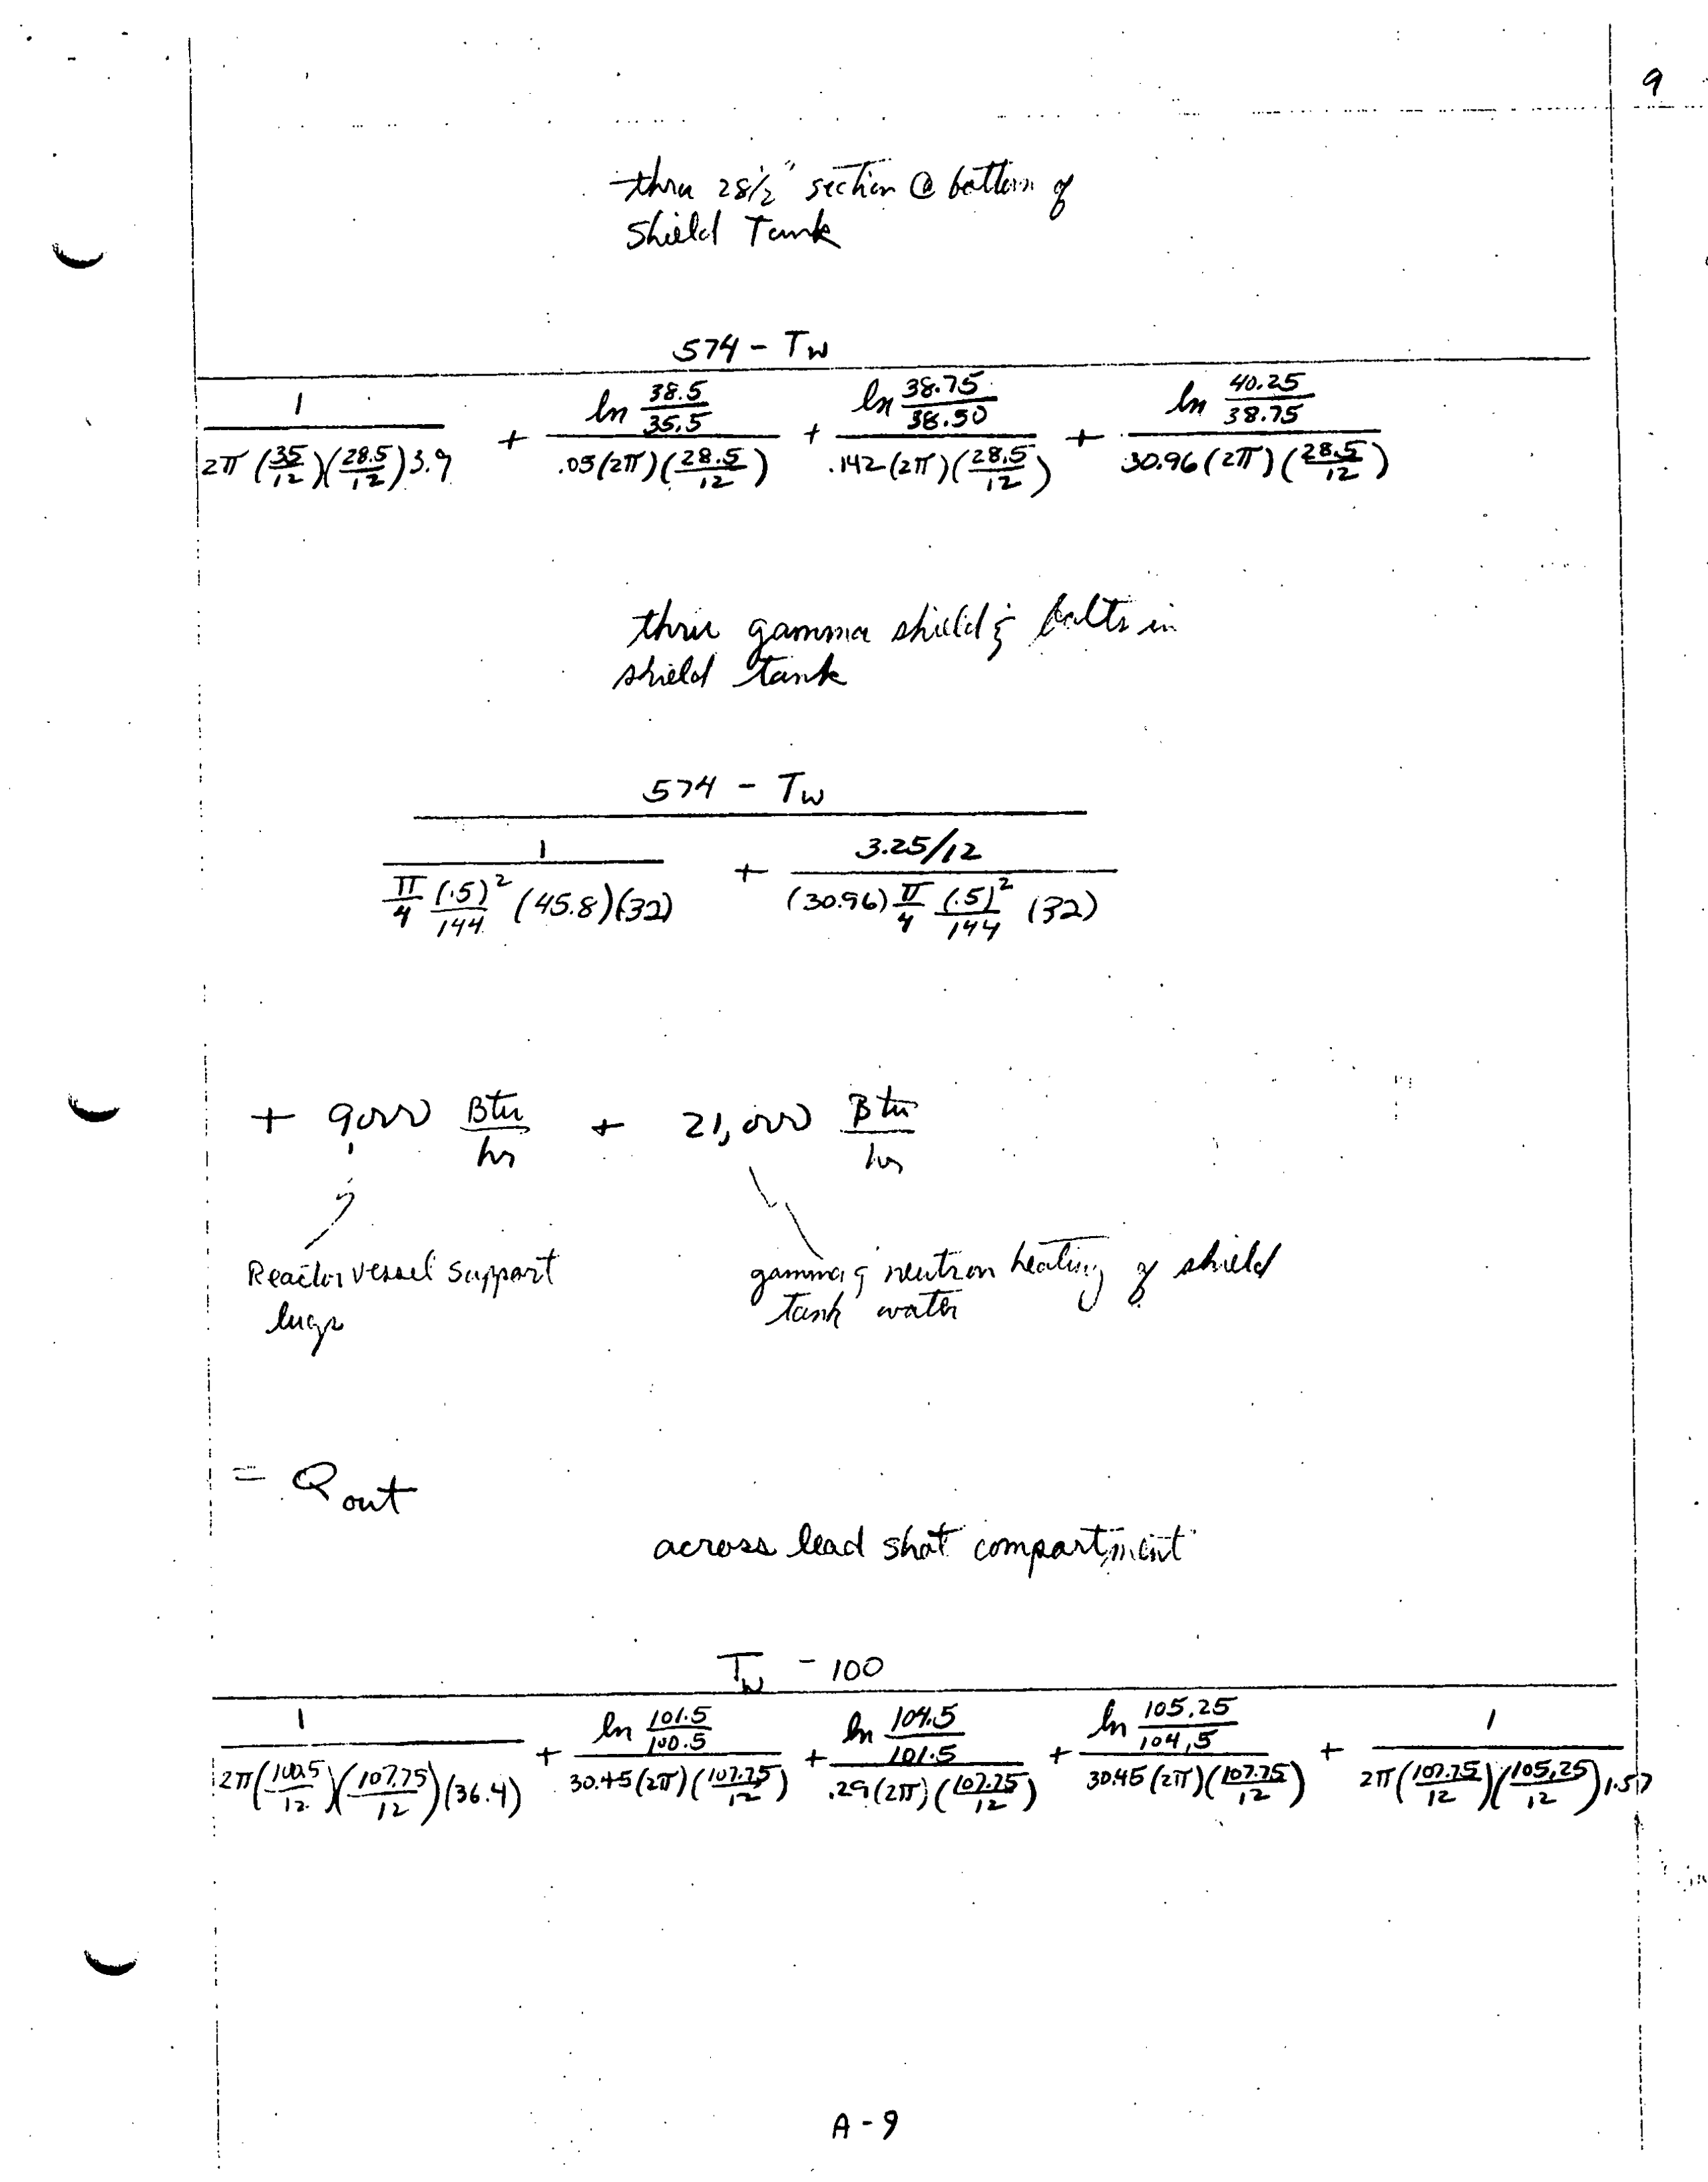 9
thru 28 1/2" section @ bottom of
Shield Tank
574 - Tw
1 / 2π (35/12)(28.5/12) 3.9 + ln 38.5/35.5 / .05 (2π)(28.5/12) + ln 38.75/38.50 / .142 (2π)(28.5/12) + ln 40.25/38.75 / 30.96 (2π)(28.5/12)
thru gamma shield & bolts in
shield tank
574 - Tw
1 / π/4 (.5)²/144 (45.8)(32) + 3.25/12 / (30.96) π/4 (.5)²/144 (32)
+ 9000 Btu/hr + 21,000 Btu/hr
Reactor vessel support
lugs
gamma & neutron heating of shield
tank water
= Q out
across lead shot compartment
Tw - 100
1 / 2π(100.5/12)(107.75/12)(36.4) + ln 101.5/100.5 / 30.45 (2π)(107.75/12) + ln 104.5/101.5 / .29 (2π)(107.75/12) + ln 105.25/104.5 / 30.45 (2π)(107.75/12) + 1 / 2π(107.75/12)(105.25/12) 1.57
A-9